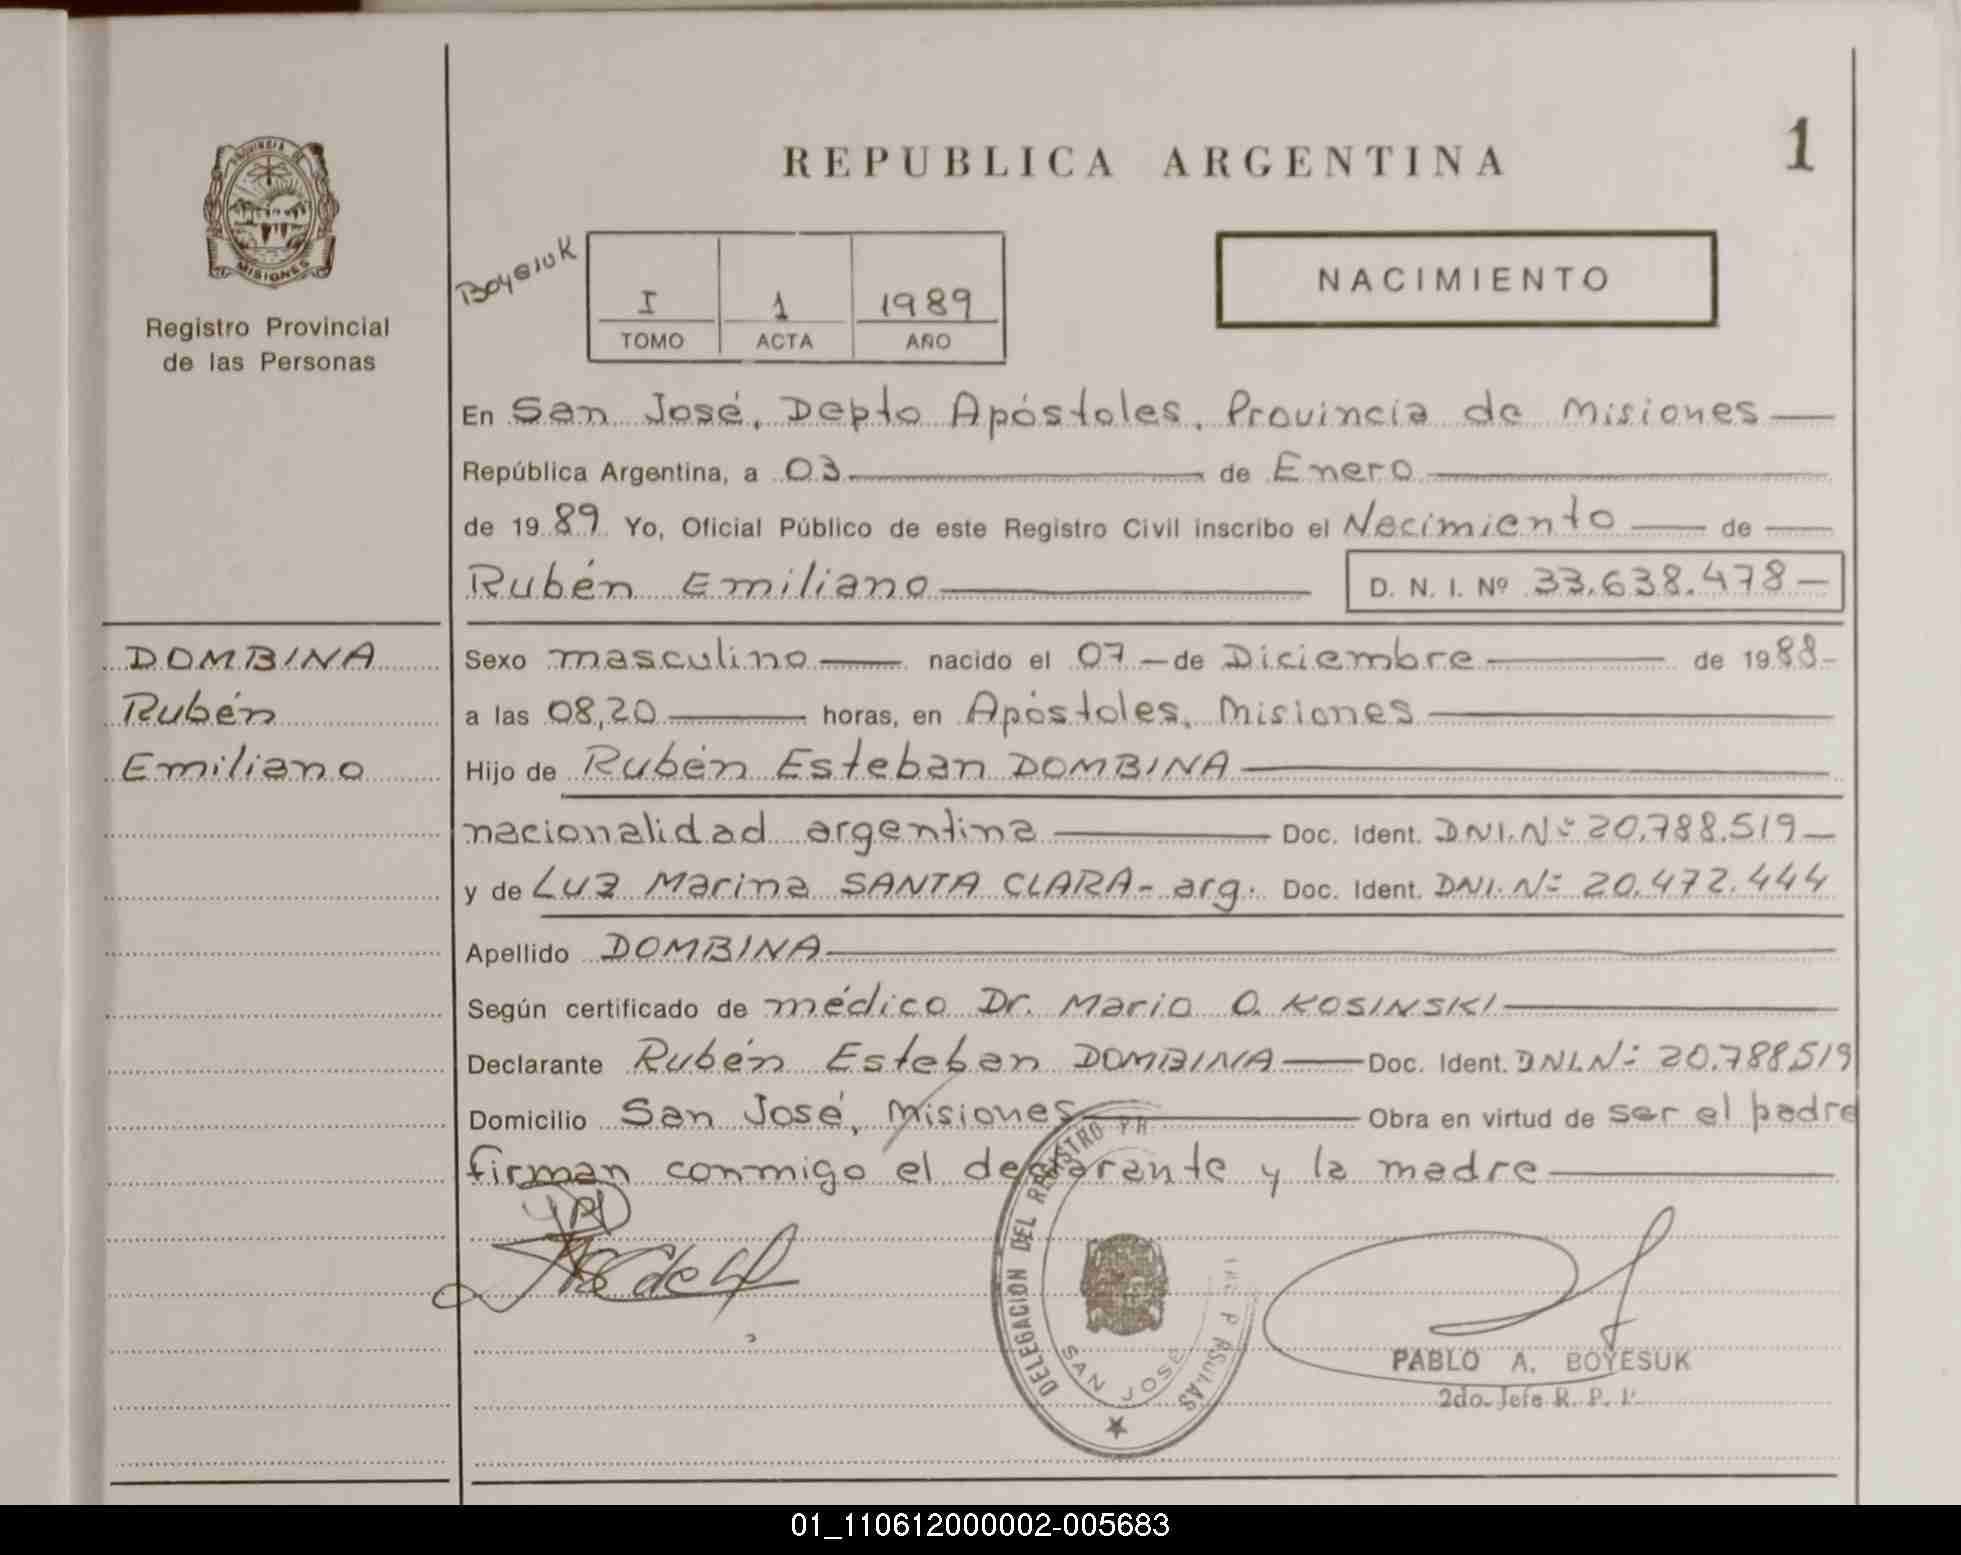 REPUBLICA ARGENTINA
1
PROVINCIA DE
MISIONES
Registro Provincial
de las Personas
Boyesuk
I 1 1989
TOMO ACTA AÑO
NACIMIENTO
En San José, Depto Apóstoles, Provincia de Misiones
República Argentina, a 03 de Enero
de 1989 Yo, Oficial Público de este Registro Civil inscribo el Nacimiento de
Rubén Emiliano D. N. I. Nº 33.638.478
DOMBINA
Rubén
Emiliano
Sexo masculino nacido el 07 de Diciembre de 1988
a las 08,20 horas, en Apóstoles, Misiones
Hijo de Rubén Esteban DOMBINA
nacionalidad argentina Doc. Ident. DNI. Nº 20.788.519
y de Luz Marina SANTA CLARA - arg. Doc. Ident. DNI. Nº 20.472.444
Apellido DOMBINA
Según certificado de médico Dr. Mario O. KOSINSKI
Declarante Rubén Esteban DOMBINA Doc. Ident. DNI. Nº 20.788519
Domicilio San José, Misiones Obra en virtud de ser el padre
firman conmigo el declarante y la madre
DELEGACION DEL REGISTRO
SAN JOSE
PABLO A. BOYESUK
2do. Jefe R. P. P.
01_110612000002-005683